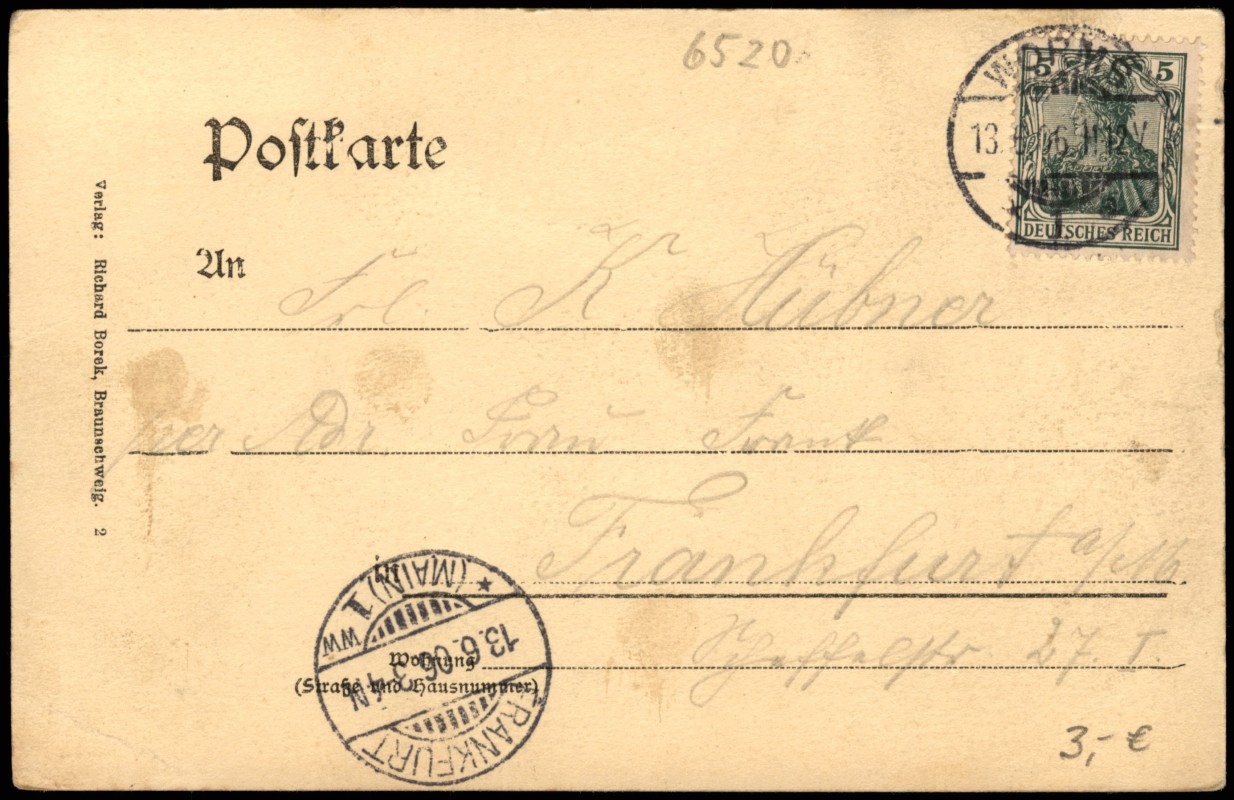 6520
5 5
WORMS
13. 6. 06. 11-12V.
* 1 a
DEUTSCHES REICH
Postkarte
An Frl. K Hübner
per Adr Frau Frank
in Frankfurt a/M
Wohnung Scheffelstr 27 I.
(Straße und Hausnummer)
FRANKFURT
13.6.06. 3-4N
(MAIN) 1 *
WW
Verlag: Richard Borek, Braunschweig. 2
3,- €